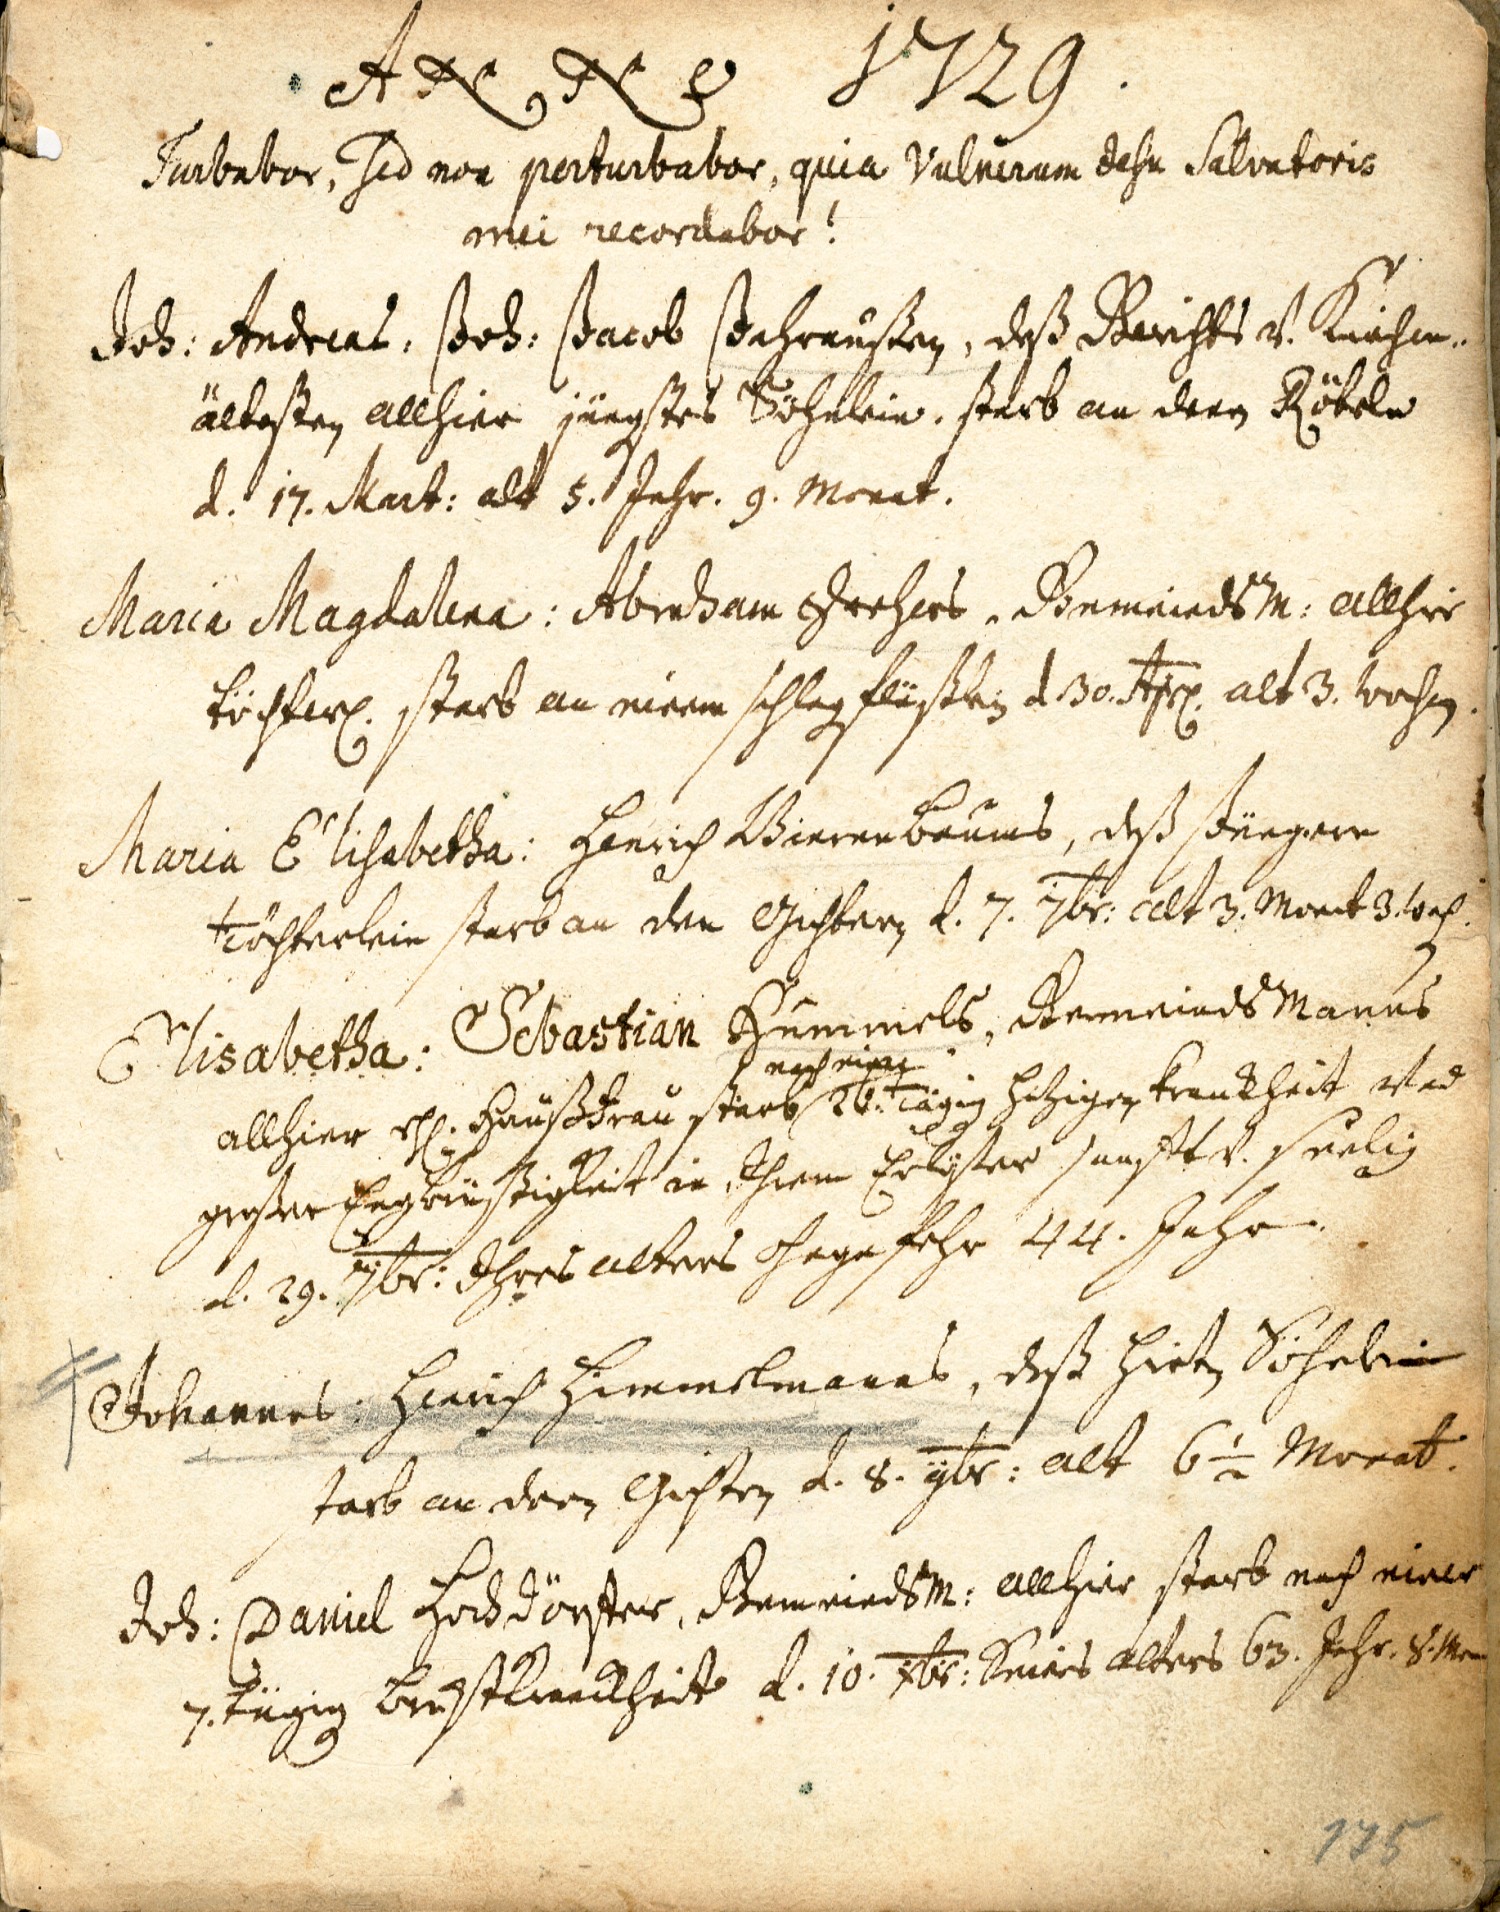 ANNO 1729.
Turbabor, sed non perturbabor, quia Vulnerum Jesu Salvatoris
mei recordabor!
Joh: Andreas, Joh: Jacob Jahraußen, deß Gerichts v. Kirchen-
ältesten allhier jüngstes Söhnlein, starb an denen Rötheln
d. 17. Mart: alt 5. Jahr. 9. Monat.
Maria Magdalena: Abraham Drehers, GemeindsM: allhier
töchterl. starb an einem schlagflüßlein d. 30. Apr. alt 3. wochen.
Maria Elisabetha: Henrich Bierenbaums, deß Jüngern
Töchterlein starb an den Gichtern d. 7. 7br: alt 3. Monat 3. woch.
Elisabetha: Sebastian Hummels, GemeindsManns
nach einer
allhier ehl. Haußfrau starb Tägigen hitzigen Krankheit und
großer Engbrüstigkeit in Ihrem Erlößer sanfft v. seelig
d. 29. 7br: Ihres alters ohngefehr 44. Jahr.
Johannes: Henrich Himmelmanns, deß Hirten Söhnlein
starb an denen Gichtern d. 8. 9br: alt 6 1/2 Monat.
Joh: Daniel Hochdörffer, GemeindsM: allhier starb nach einer
7. tägigen brustkranckheit d. 10. xbr: Seines alters 63. Jahr. 8. Mon
175